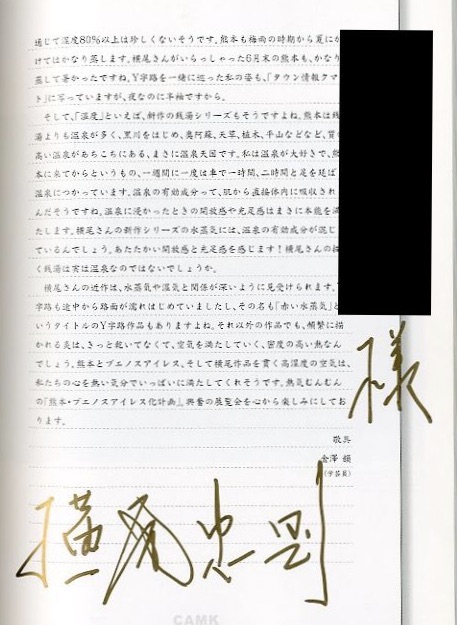 通じて湿度80%以上は珍しくないそうです。熊本も梅雨の時期から夏にか
けてはかなり蒸します。横尾さんがいらっしゃった6月末の熊本も、かなり
蒸して暑かったですね。Y字路を一緒に巡った私の姿も、「タウン情報クマ
ト」に写っていますが、夜なのに半袖ですから。
そして、「温度」といえば、新作の銭湯シリーズもそうですよね。熊本は銭
湯よりも温泉が多く、黒川をはじめ、奥阿蘇、天草、植木、平山などなど、質の
高い温泉があちこちにある、まさに温泉天国です。私は温泉が大好きで、熊
本に来てからというもの、一週間に一度は車で一時間、二時間と足を延ば
温泉につかっています。温泉の有効成分って、肌から直接体内に吸収され
んだそうですね。温泉に浸かったときの開放感や充足感はまさに本能を満
たします。横尾さんの新作シリーズの水蒸気には、温泉の有効成分が混じ
ているんでしょう。あたたかい開放感と充足感を感じます!横尾さんの描
く銭湯は実は温泉なのではないでしょうか。
横尾さんの近作は、水蒸気や湿気と関係が深いように見受けられます。Y
字路も途中から路面が濡れはじめていましたし、その名も「赤い水蒸気」と
いうタイトルのY字路作品もありますよね。それ以外の作品でも、頻繁に描
かれる炎は、きっと乾いてなくて、空気を満たしていく、密度の高い熱なん
でしょう。熊本とブエノスアイレス、そして横尾作品を貫く高湿度の空気は、
私たちの心を熱い気分でいっぱいに満たしてくれそうです。熱気むんむん
の「熊本・ブエノスアイレス化計画」、興奮の展覧会を心から楽しみにしてお
ります。
敬具
金澤 韻
(学芸員)
様
横尾忠則
CAMK